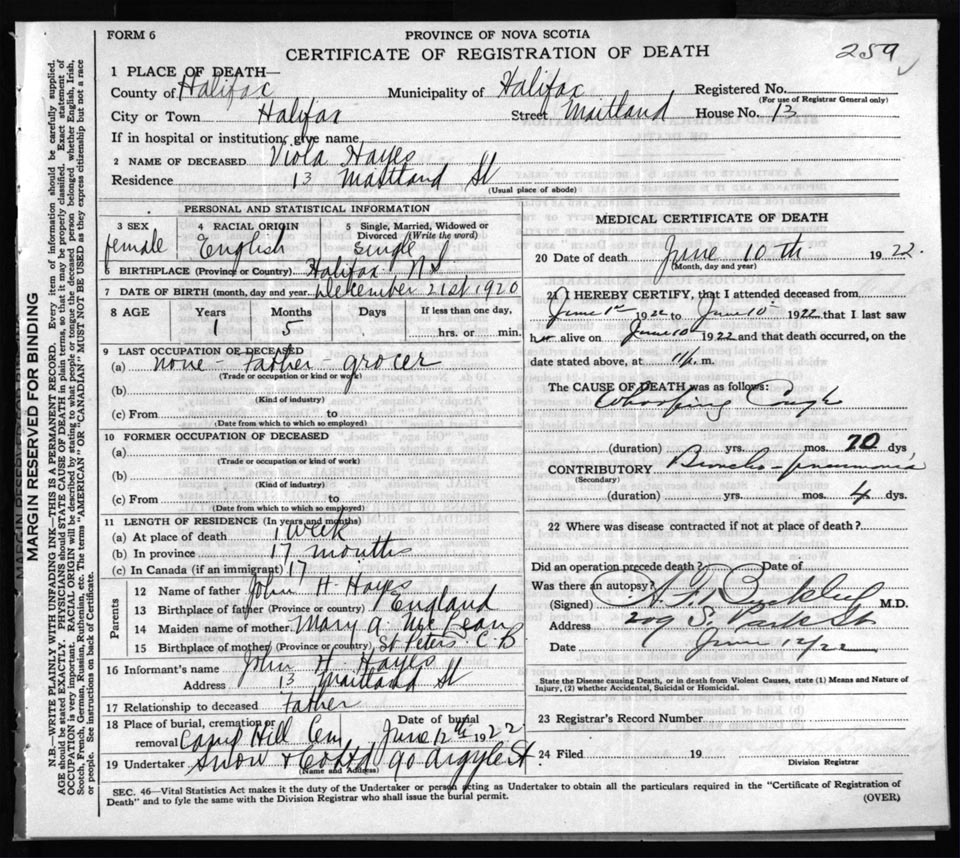 FORM 6
PROVINCE OF NOVA SCOTIA
CERTIFICATE OF REGISTRATION OF DEATH
259
MARGIN RESERVED FOR BINDING
N.B.—WRITE PLAINLY WITH UNFADING INK—THIS IS A PERMANENT RECORD. Every item of information should be carefully supplied.
AGE should be stated EXACTLY. PHYSICIANS should STATE CAUSE OF DEATH in plain terms, so that it may be properly classified. Exact statement of
OCCUPATION is very important. RACIAL ORIGIN will be described by stating to what people or tongue the deceased person belonged whether English, Irish,
Scotch, French, German, Russian, Ruthenian, etc. The terms "AMERICAN" OR "CANADIAN" MUST NOT BE USED as they express citizenship but not a race
or people. See instructions on back of Certificate.
1 PLACE OF DEATH—
County of Halifax Municipality of Halifax Registered No.
(For use of Registrar General only)
City or Town Halifax Street Maitland House No. 13
If in hospital or institution, give name
2 NAME OF DECEASED Viola Hayes
Residence 13 Maitland St
(Usual place of abode)
PERSONAL AND STATISTICAL INFORMATION
3 SEX female
4 RACIAL ORIGIN English
5 Single, Married, Widowed or Divorced (Write the word) Single
6 BIRTHPLACE (Province or Country) Halifax N.S
7 DATE OF BIRTH (month, day and year December 21st 1920
8 AGE Years Months Days If less than one day,
1 5 hrs. or min.
9 LAST OCCUPATION OF DECEASED
(a) none - Father grocer
(Trade or occupation or kind or work)
(b)
(Kind of industry)
(c) From to
(Date from which to which so employed)
10 FORMER OCCUPATION OF DECEASED
(a)
(Trade or occupation or kind of work)
(b)
(Kind of industry)
(c) From to
(Date from which to which so employed)
11 LENGTH OF RESIDENCE (In years and months)
(a) At place of death 1 week
(b) In province 17 months
(c) In Canada (if an immigrant) 17
Parents
12 Name of father John H. Hayes
13 Birthplace of father (Province or country) England
14 Maiden name of mother Mary A. McBean
15 Birthplace of mother (Province or country) St Peters C.B
16 Informant's name John H. Hayes
Address 13 Maitland St
17 Relationship to deceased Father
18 Place of burial, cremation or removal Camp Hill Cem
Date of burial June 12th 1922
19 Undertaker Snow & Co Ltd 90 Argyle St.
(Name and Address)
MEDICAL CERTIFICATE OF DEATH
20 Date of death June 10th 1922.
(Month, day and year)
21 I HEREBY CERTIFY, that I attended deceased from
June 1st 1922 to June 10 1922 that I last saw
her alive on June 10 1922 and that death occurred, on the
date stated above, at 11 p. m.
The CAUSE OF DEATH was as follows:
Whooping Cough
(duration) yrs. mos. 20 dys.
CONTRIBUTORY Broncho-pneumonia
(Secondary)
(duration) yrs. mos. 4 dys.
22 Where was disease contracted if not at place of death?
Did an operation precede death? Date of
Was there an autopsy?
(Signed) A.F. Buckley M.D.
Address 209 S. Park St
Date June 12/22
State the Disease causing Death, or in death from Violent Causes, state (1) Means and Nature of
Injury, (2) whether Accidental, Suicidal or Homicidal.
23 Registrar's Record Number
24 Filed 19
Division Registrar
SEC. 46—Vital Statistics Act makes it the duty of the Undertaker or person acting as Undertaker to obtain all the particulars required in the "Certificate of Registration of
Death" and to fyle the same with the Division Registrar who shall issue the burial permit.
(OVER)